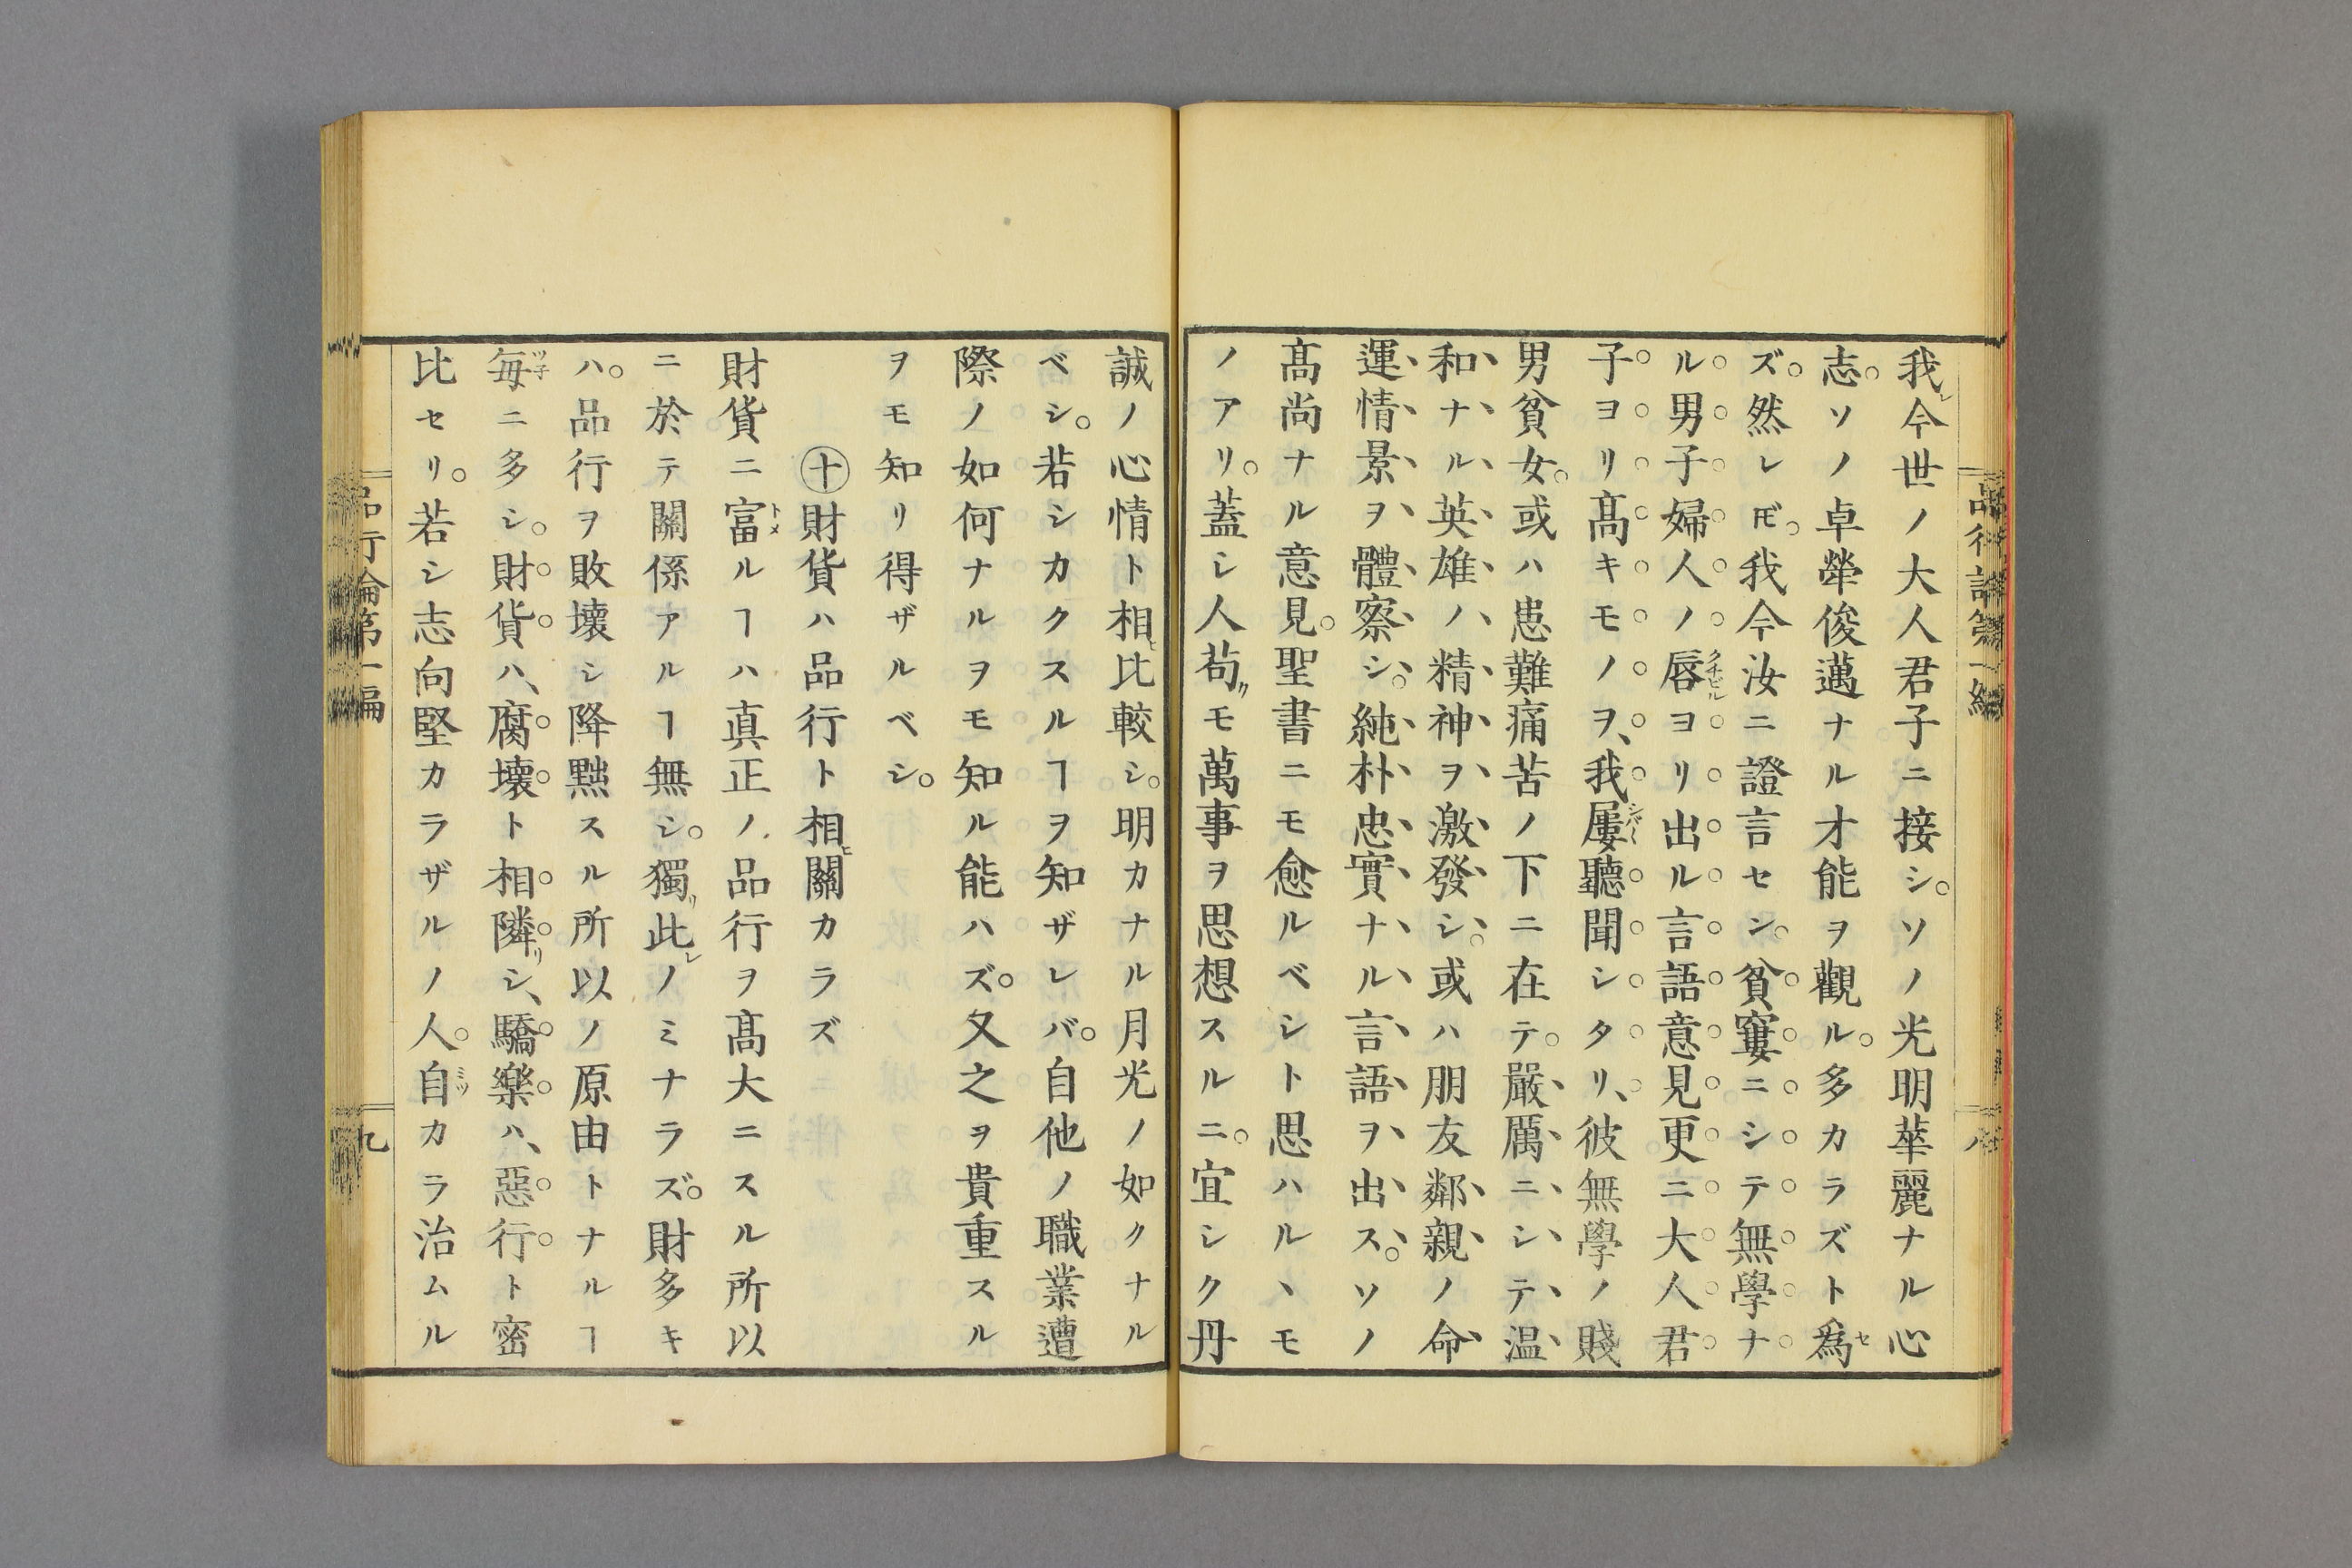 我レ今世ノ大人君子ニ接シ。ソノ光明華麗ナル心
志。ソノ卓犖俊邁ナル才能ヲ觀ル。多カラズト爲セ
ズ。然レ𪜈。我今汝ニ證言セン。貧窶ニシテ無學ナ
ル男子婦人ノ唇クチビルヨリ出ル言語意見更ニ大人君
子ヨリ髙キモノヲ、我屢シバ〱聽聞シタリ、彼無學ノ賤
男貧女。或ハ患難痛苦ノ下ニ在テ。嚴厲ニシテ温
和ナル英雄ノ精神ヲ激發シ。或ハ朋友鄰親ノ命
運情景ヲ體察シ。純朴忠實ナル言語ヲ出ス。ソノ
髙尚ナル意見。聖書ニモ愈ルベシト思ハルヽモ
ノアリ。蓋シ人苟ツモ萬事ヲ思想スルニ。宜シク丹
誠ノ心情ト相ヒ比較シ。明カナル月光ノ如クナル
ベシ。若シカクスルヿヲ知ザレバ。自他ノ職業遭
際ノ如何ナルヲモ知ル能ハズ。又之ヲ貴重スル
ヲモ知リ得ザルベシ。
㊉財貨ハ品行ト相ヒ關カラズ
財貨ニ富トメルヿハ真正ノ品行ヲ髙大ニスル所以
ニ於テ關係アルヿ無シ。獨リ此レノミナラズ。財多キ
ハ。品行ヲ敗壞シ降黜スル所以ノ原由トナルヿ
每ツ子ニ多シ。財貨ハ、腐壞ト相隣リシ、驕樂ハ、惡行ト密
比セリ。若シ志向堅カラザルノ人。自ミツカラ治ムル
品行論第一編
九